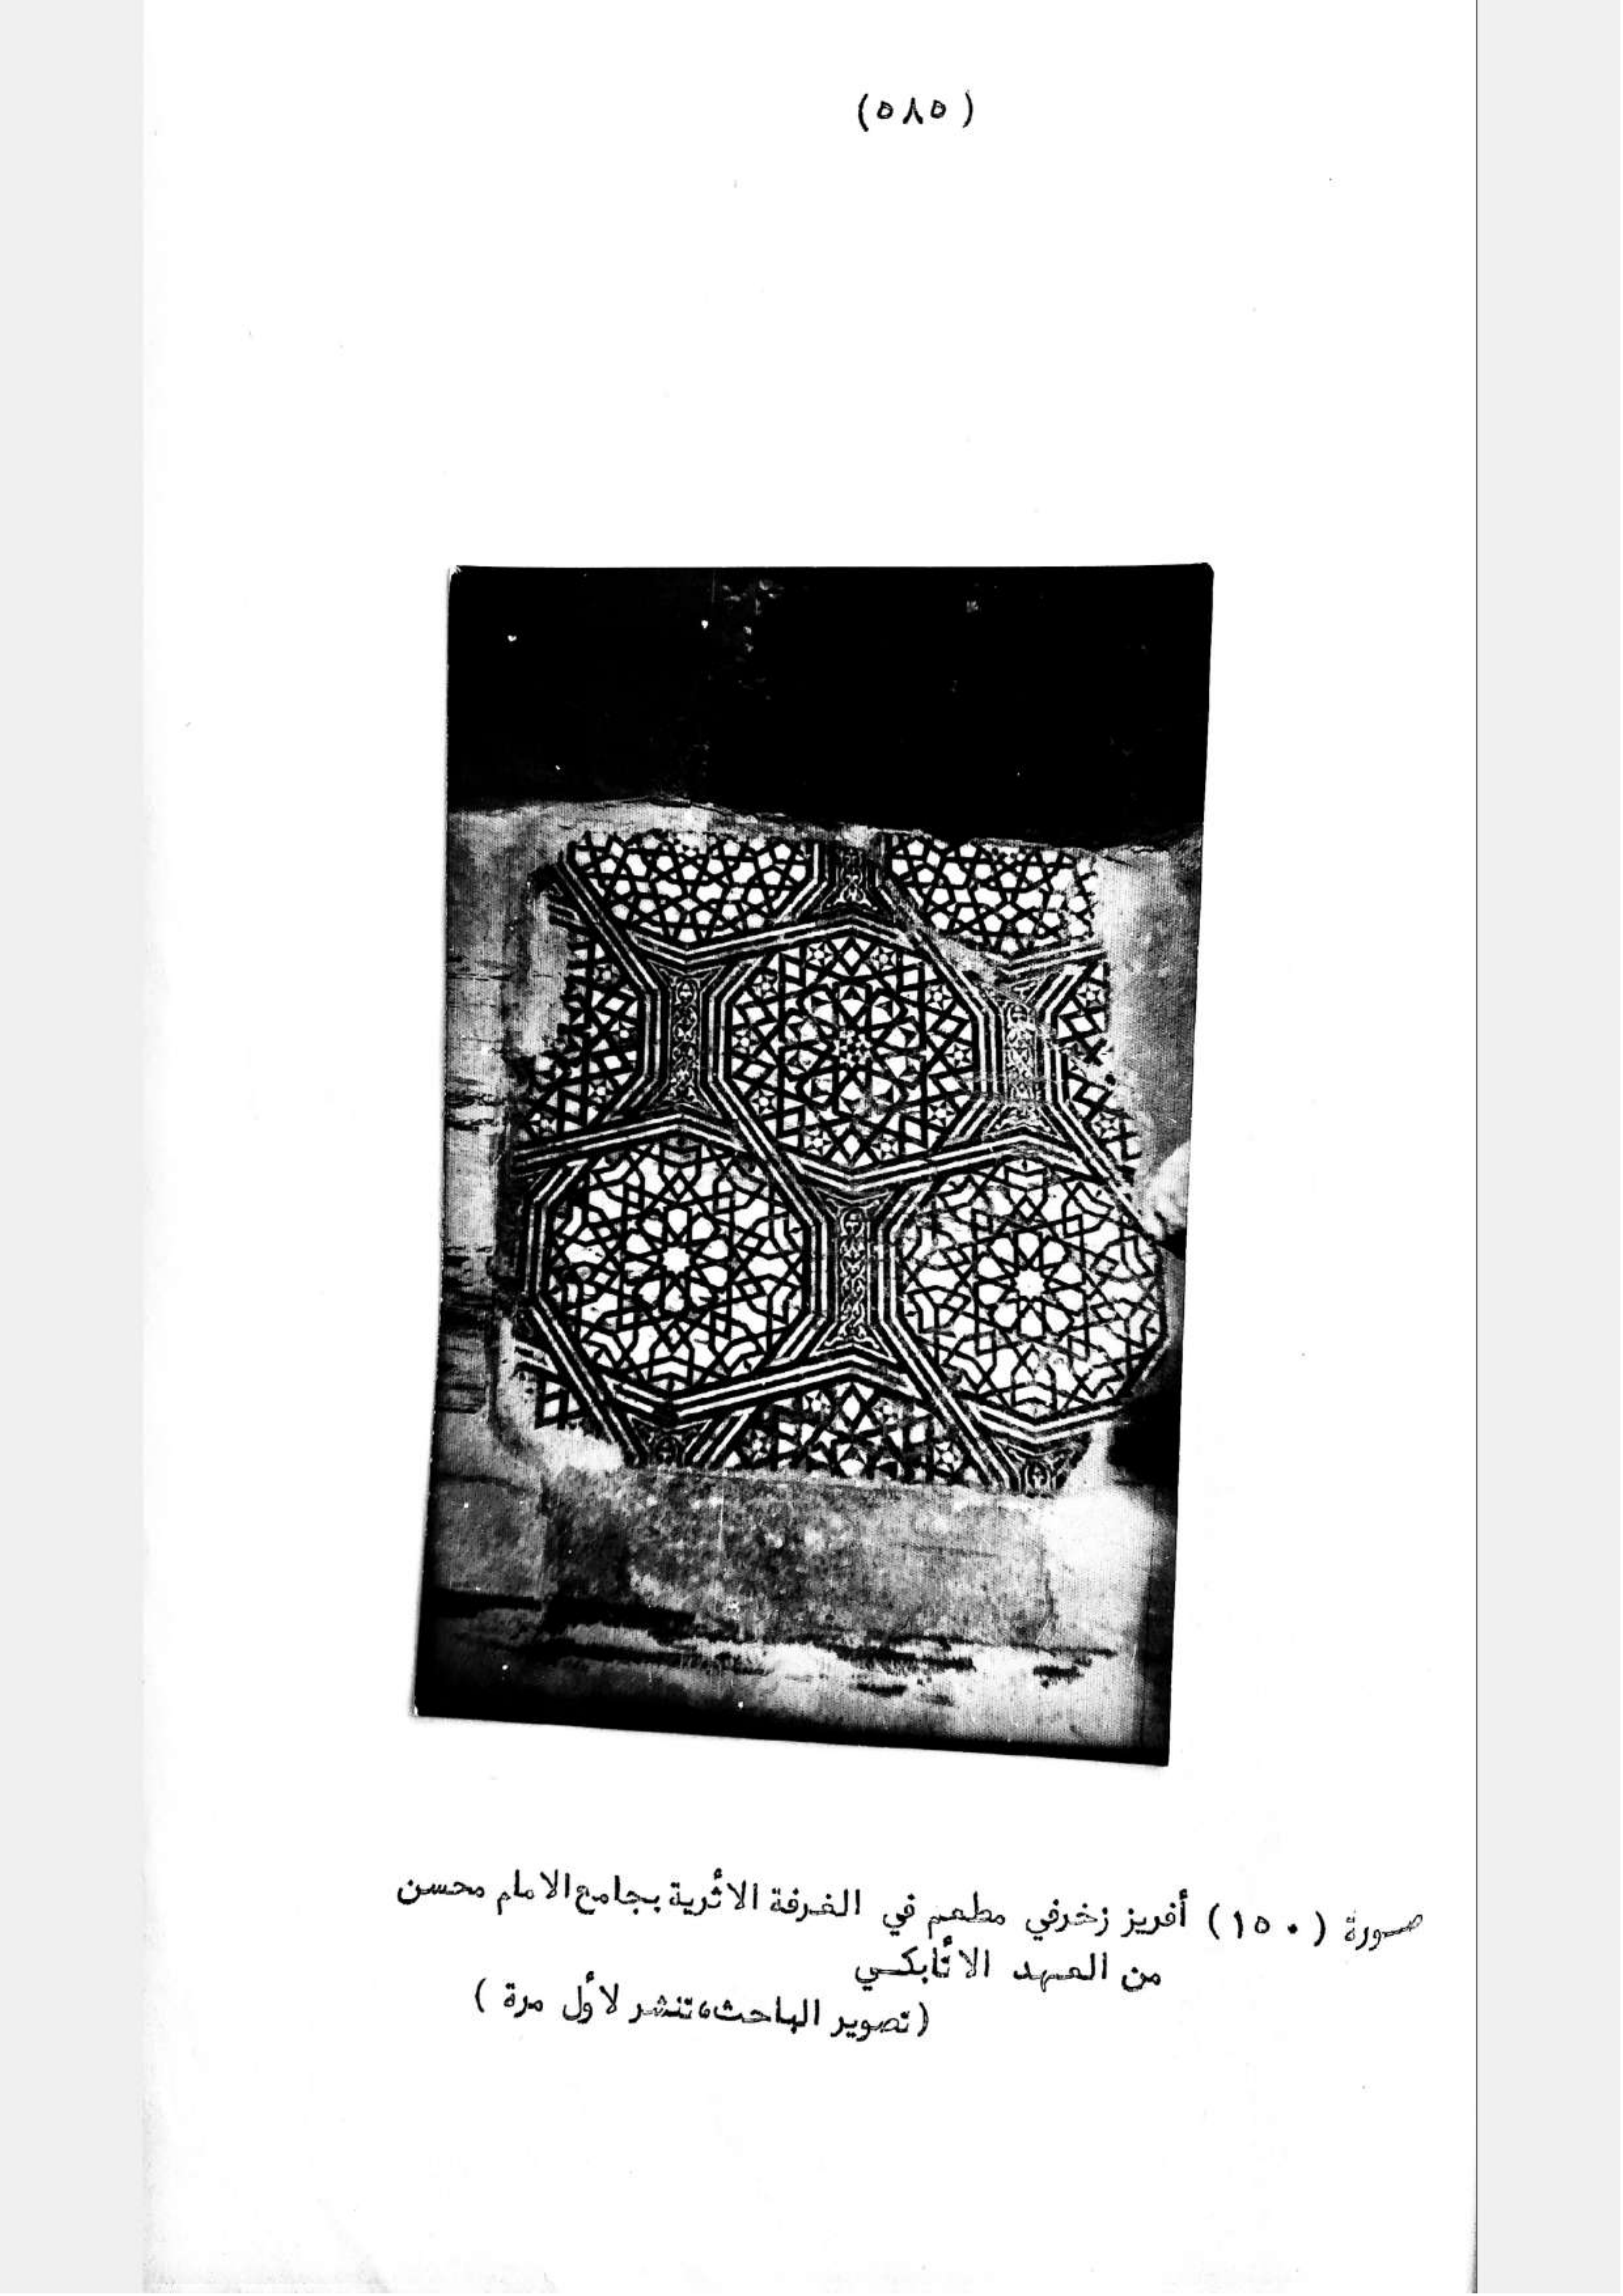 (٥٨٥)
صورة (١٥٠) أفريز زخرفي مطعم في الغرفة الاثرية بجامع الامام محسن
من العهد الاتابكي
(تصوير الباحث، تنشر لأول مرة)